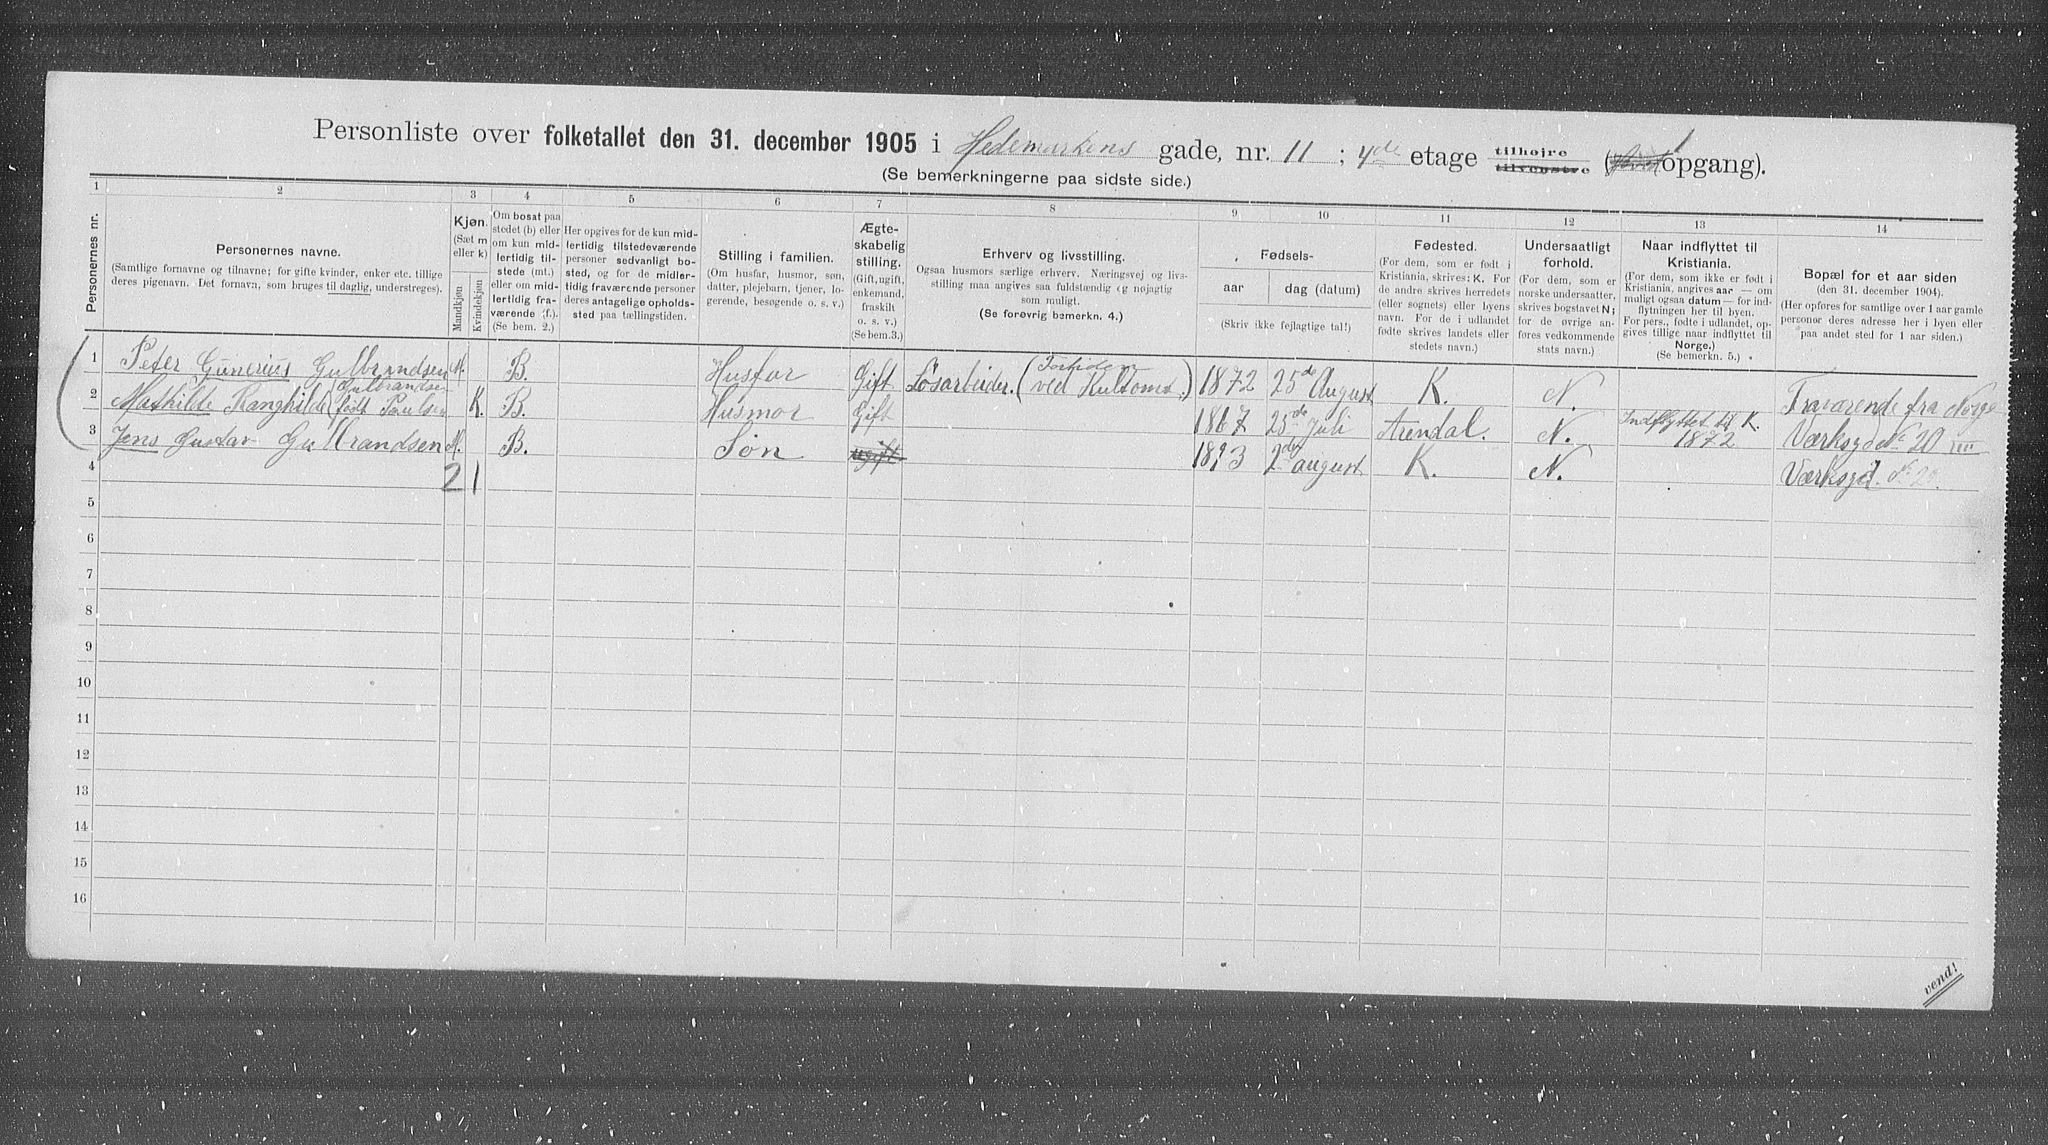 Personliste over folketallet den 31. december 1905 i Hedemarkens gade, nr. 11 ; 4de etage tilhøjre tilvenstre ( opgang).
(Se bemerkningerne paa sidste side.)
1 2 3 4 5 6 7 8 9 10 11 12 13 14
Personernes nr.
Personernes navne.
(Samtlige fornavne og tilnavne; for gifte kvinder, enker etc. tillige
deres pigenavn. Det fornavn, som bruges til daglig, understreges).
Kjøn.
(Sæt m
eller k)
Mandkjøn
Kvindekjøn
Om bosat paa
stedet (b) eller
om kun mid-
lertidig til-
stede (mt.)
eller om mid-
lertidig fra-
værende (f.).
(Se bem. 2.)
Her opgives for de kun mid-
lertidig tilstedeværende
personer sedvanlig bo-
sted, og for de midler-
tidig fraværende personer
deres antagelige opholds-
sted paa tællingstiden.
Stilling i familien.
(Om husfar, husmor, søn,
datter, plejebarn, tjener, lo-
gerende, besøgende o. s. v.)
Ægte-
skabelig
stilling.
(Gift, ugift,
enkemand,
fraskilt
o. s. v.)
(Se bem.3.)
Erhverv og livsstilling.
Ogsaa husmors særlige erhverv. Næringsvej og livs-
stilling maa angives saa fuldstændig og nøjagtig
som muligt.
(Se forøvrig bemerkn. 4.)
Fødsels-
aar
dag (datum)
(Skriv ikke fejlagtige tal!)
Fødested.
(For dem, som er født i
Kristiania, skrives: K. For
de andre skrives herredets
(eller sognets) eller byens
navn. For de i udlandet
fødte skrives landets eller
stedets navn.)
Undersaatligt
forhold.
(For dem, som er
norske undersaatter,
skrives bogstavet N;
for de øvrige an-
føres vedkommende
stats navn.)
Naar indflyttet til
Kristiania.
(For dem, som ikke er født i
Kristiania, angives aar — om
muligt ogsaa datum — for ind-
flytningen her til byen.
For pers., fødte i udlandet, op-
gives tillige naar indflyttet til
Norge.)
(Se bemerkn. 5.)
Bopæl for et aar siden
(den 31. december 1904).
(Her opføres for samtlige over 1 aar gamle
personer deres adresse her i byen eller
paa andet sted for 1 aar siden.)
1 Peter Gunerius Gulbrandsen M. B. Husfar Gift Løsarbeider. (Fortiden ved Kultomt.) 1872 25de August K. N. Fraværende fra Norge
2 Mathilde Ranghilde Gulbrandsen født Paulsen K. B. Husmor Gift 1867 25de Juli Arendal. N. Indflyttet til K. 1872 Værksgd No 20
3 Jens Gustav Gulbrandsen M. B. Søn ugift 1893 2de august K. N. Værksgd. No 20.
4
2 1
5
6
7
8
9
10
11
12
13
14
15
16
vend!